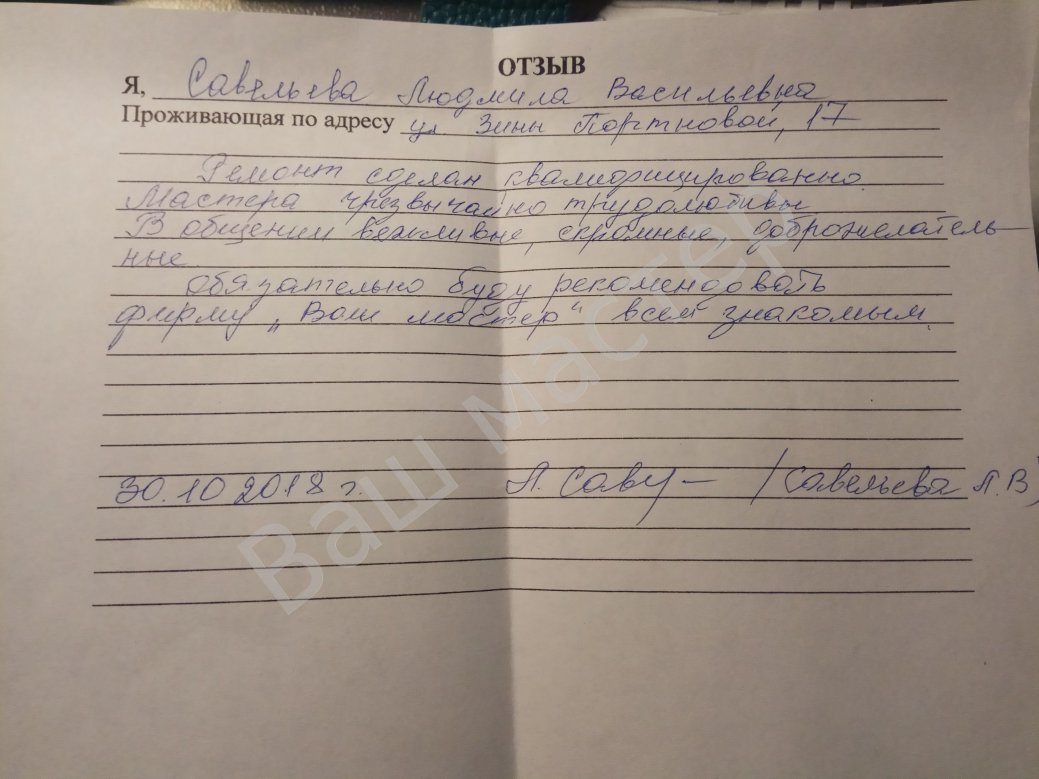 ОТЗЫВ
Я, Савельева Людмила Васильевна
Проживающая по адресу ул Зины Портновой, 17
Ремонт сделан квалифицированно.
Мастера чрезвычайно трудолюбивы
В общении вежливые, скромные, доброжелатель-
ные.
Обязательно буду рекомендовать
фирму „Ваш мастер“ всем знакомым.
30.10 2018 г. Л. Саву- /Савельева Л.В/
Ваш мастер